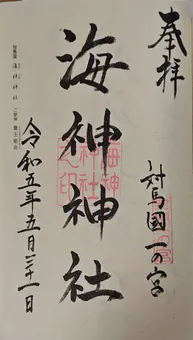 奉拝
対馬國一の宮
海神神社
海神
神社
之印
令和五年五月三十一日